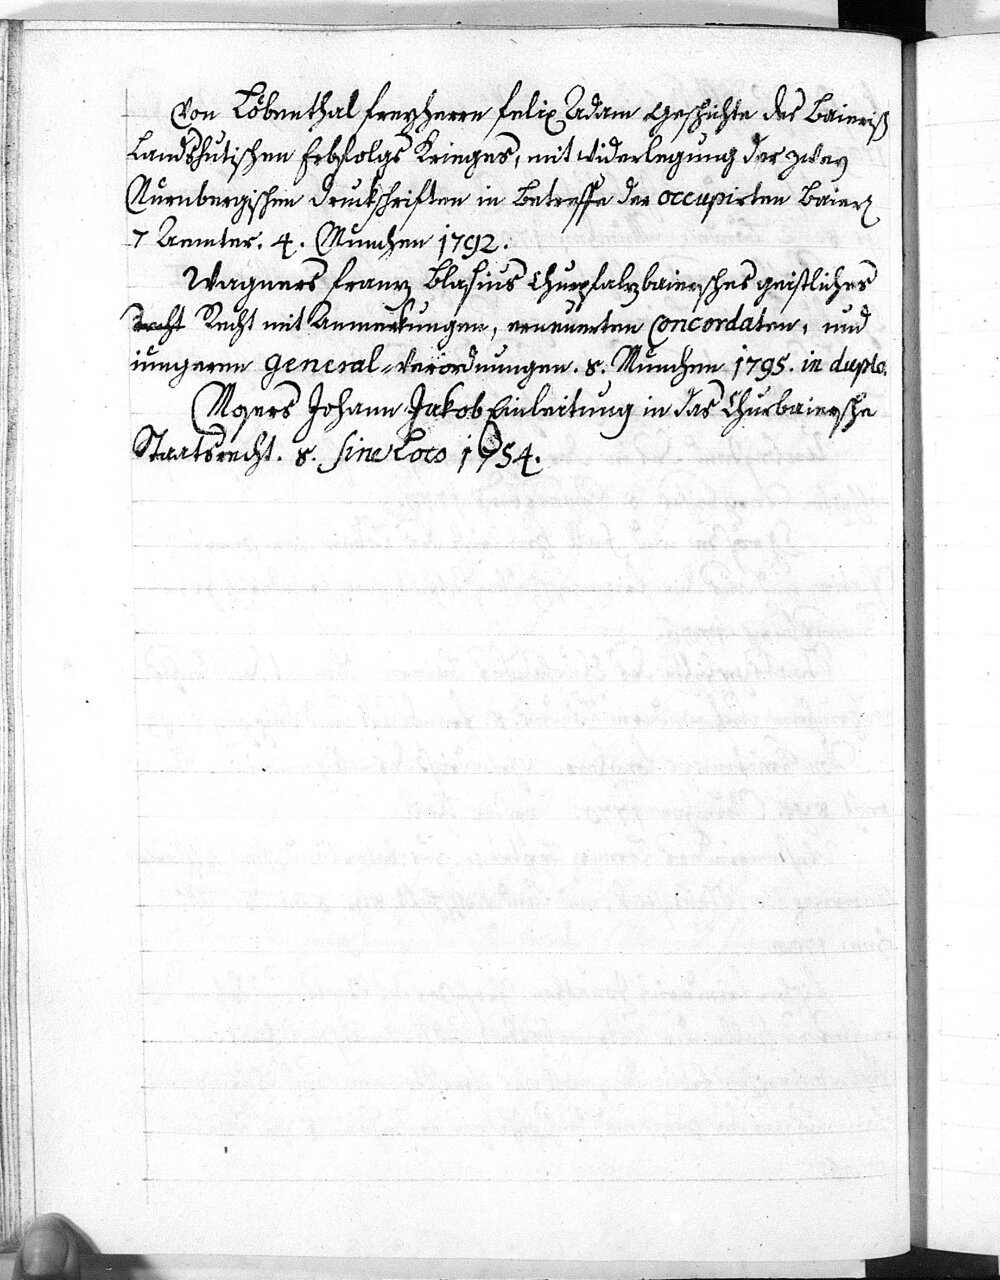 Von Löbenthal freyherrn felix Adam Geschichte des Baierisch
Landshutischen Erbfolgs Krieges, mit widerlegung der zwey
Nürnbergischen druckschriften in Betreffe der occupirten Baier.
7 Aemter. 4. München 1792.
Wagners franz Blasius Churpfalzbaiersches geistliches
Recht mit Anmerkungen, erneuerten Concordaten, und
jüngeren General-Verordnungen. 8. München 1795. in duplo.
Mosers Johann Jakob Einleitung in das Churbaiersche
Staatsrecht. 8. sine Loco 1754.